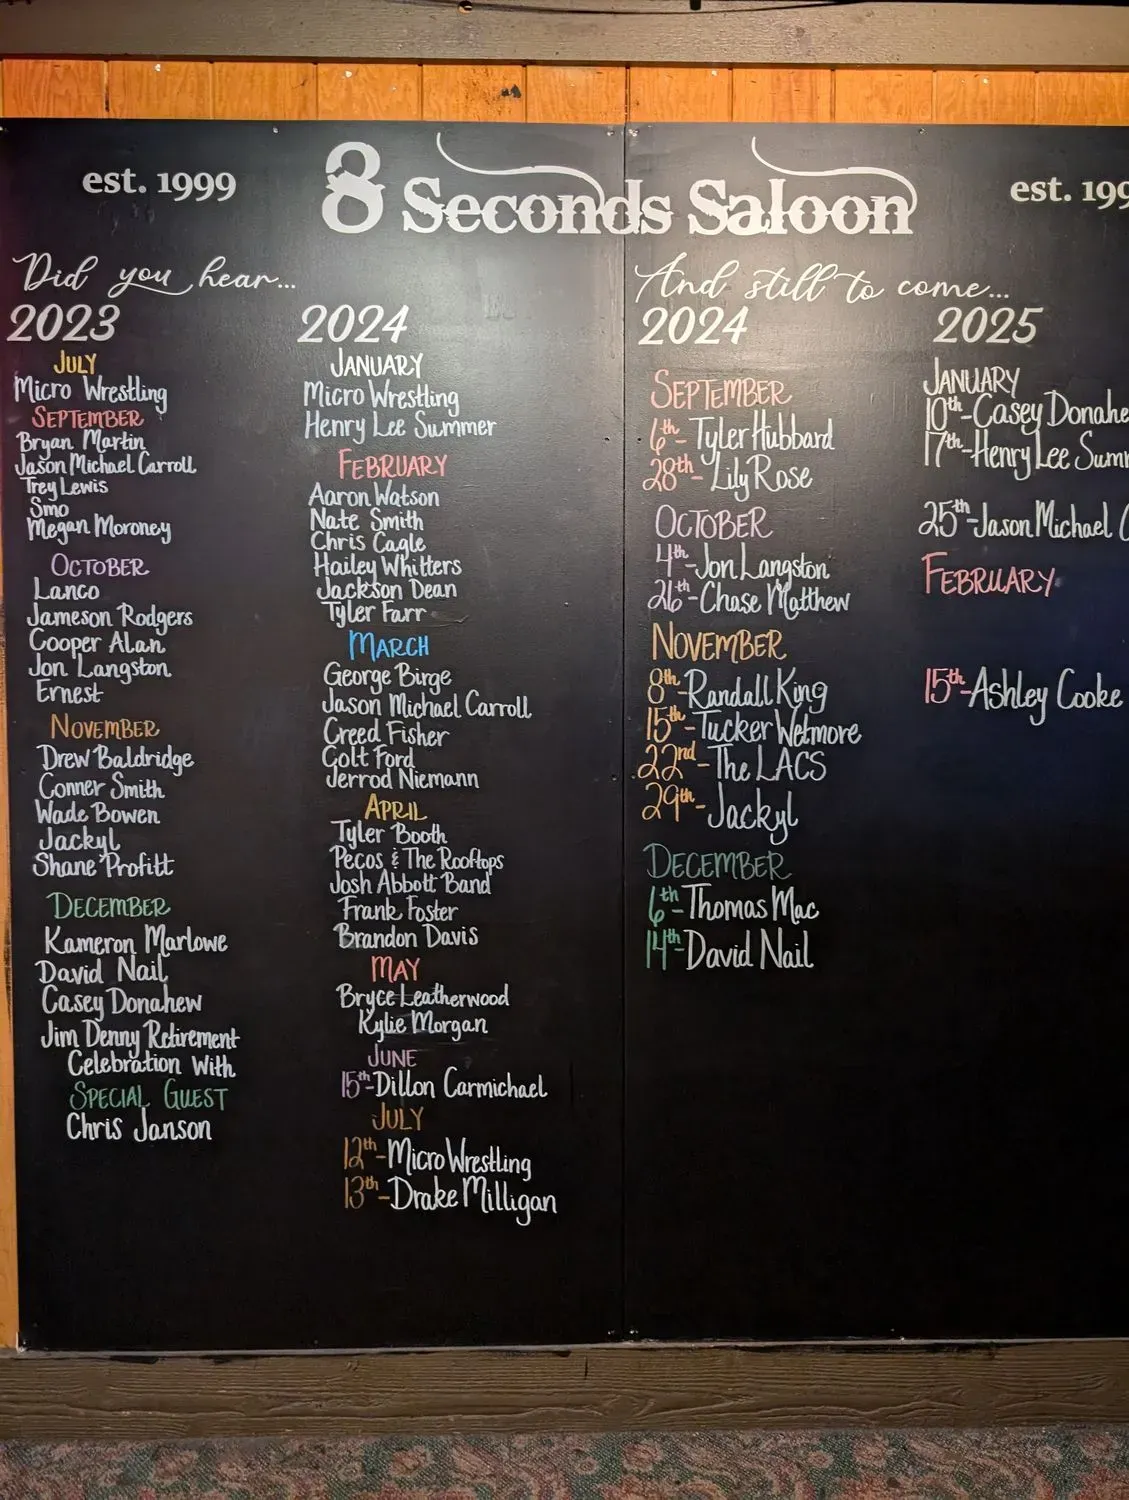 est. 1999
8 Seconds Saloon
est. 199
Did you hear...
2023
JULY
Micro Wrestling
SEPTEMBER
Bryan Martin
Jason Michael Carroll
Trey Lewis
Smo
Megan Moroney
OCTOBER
Lanco
Jameson Rodgers
Cooper Alan
Jon Langston
Ernest
NOVEMBER
Drew Baldridge
Conner Smith
Wade Bowen
Jackyl
Shane Profitt
DECEMBER
Kameron Marlowe
David Nail
Casey Donahew
Jim Denny Retirement
Celebration With
SPECIAL GUEST
Chris Janson
2024
JANUARY
Micro Wrestling
Henry Lee Summer
FEBRUARY
Aaron Watson
Nate Smith
Chris Cagle
Hailey Whitters
Jackson Dean
Tyler Farr
MARCH
George Birge
Jason Michael Carroll
Creed Fisher
Colt Ford
Jerrod Niemann
APRIL
Tyler Booth
Pecos & The Rooftops
Josh Abbott Band
Frank Foster
Brandon Davis
MAY
Bryce Leatherwood
Kylie Morgan
JUNE
15th-Dillon Carmichael
JULY
12th-Micro Wrestling
13th-Drake Milligan
And still to come...
2024
SEPTEMBER
6th-Tyler Hubbard
28th-Lily Rose
OCTOBER
4th-Jon Langston
26th-Chase Matthew
NOVEMBER
8th-Randall King
15th-Tucker Wetmore
22nd-The LACS
29th-Jackyl
DECEMBER
6th-Thomas Mac
14th-David Nail
2025
JANUARY
10th-Casey Donahe
17th-Henry Lee Summ
25th-Jason Michael C
FEBRUARY
15th-Ashley Cooke